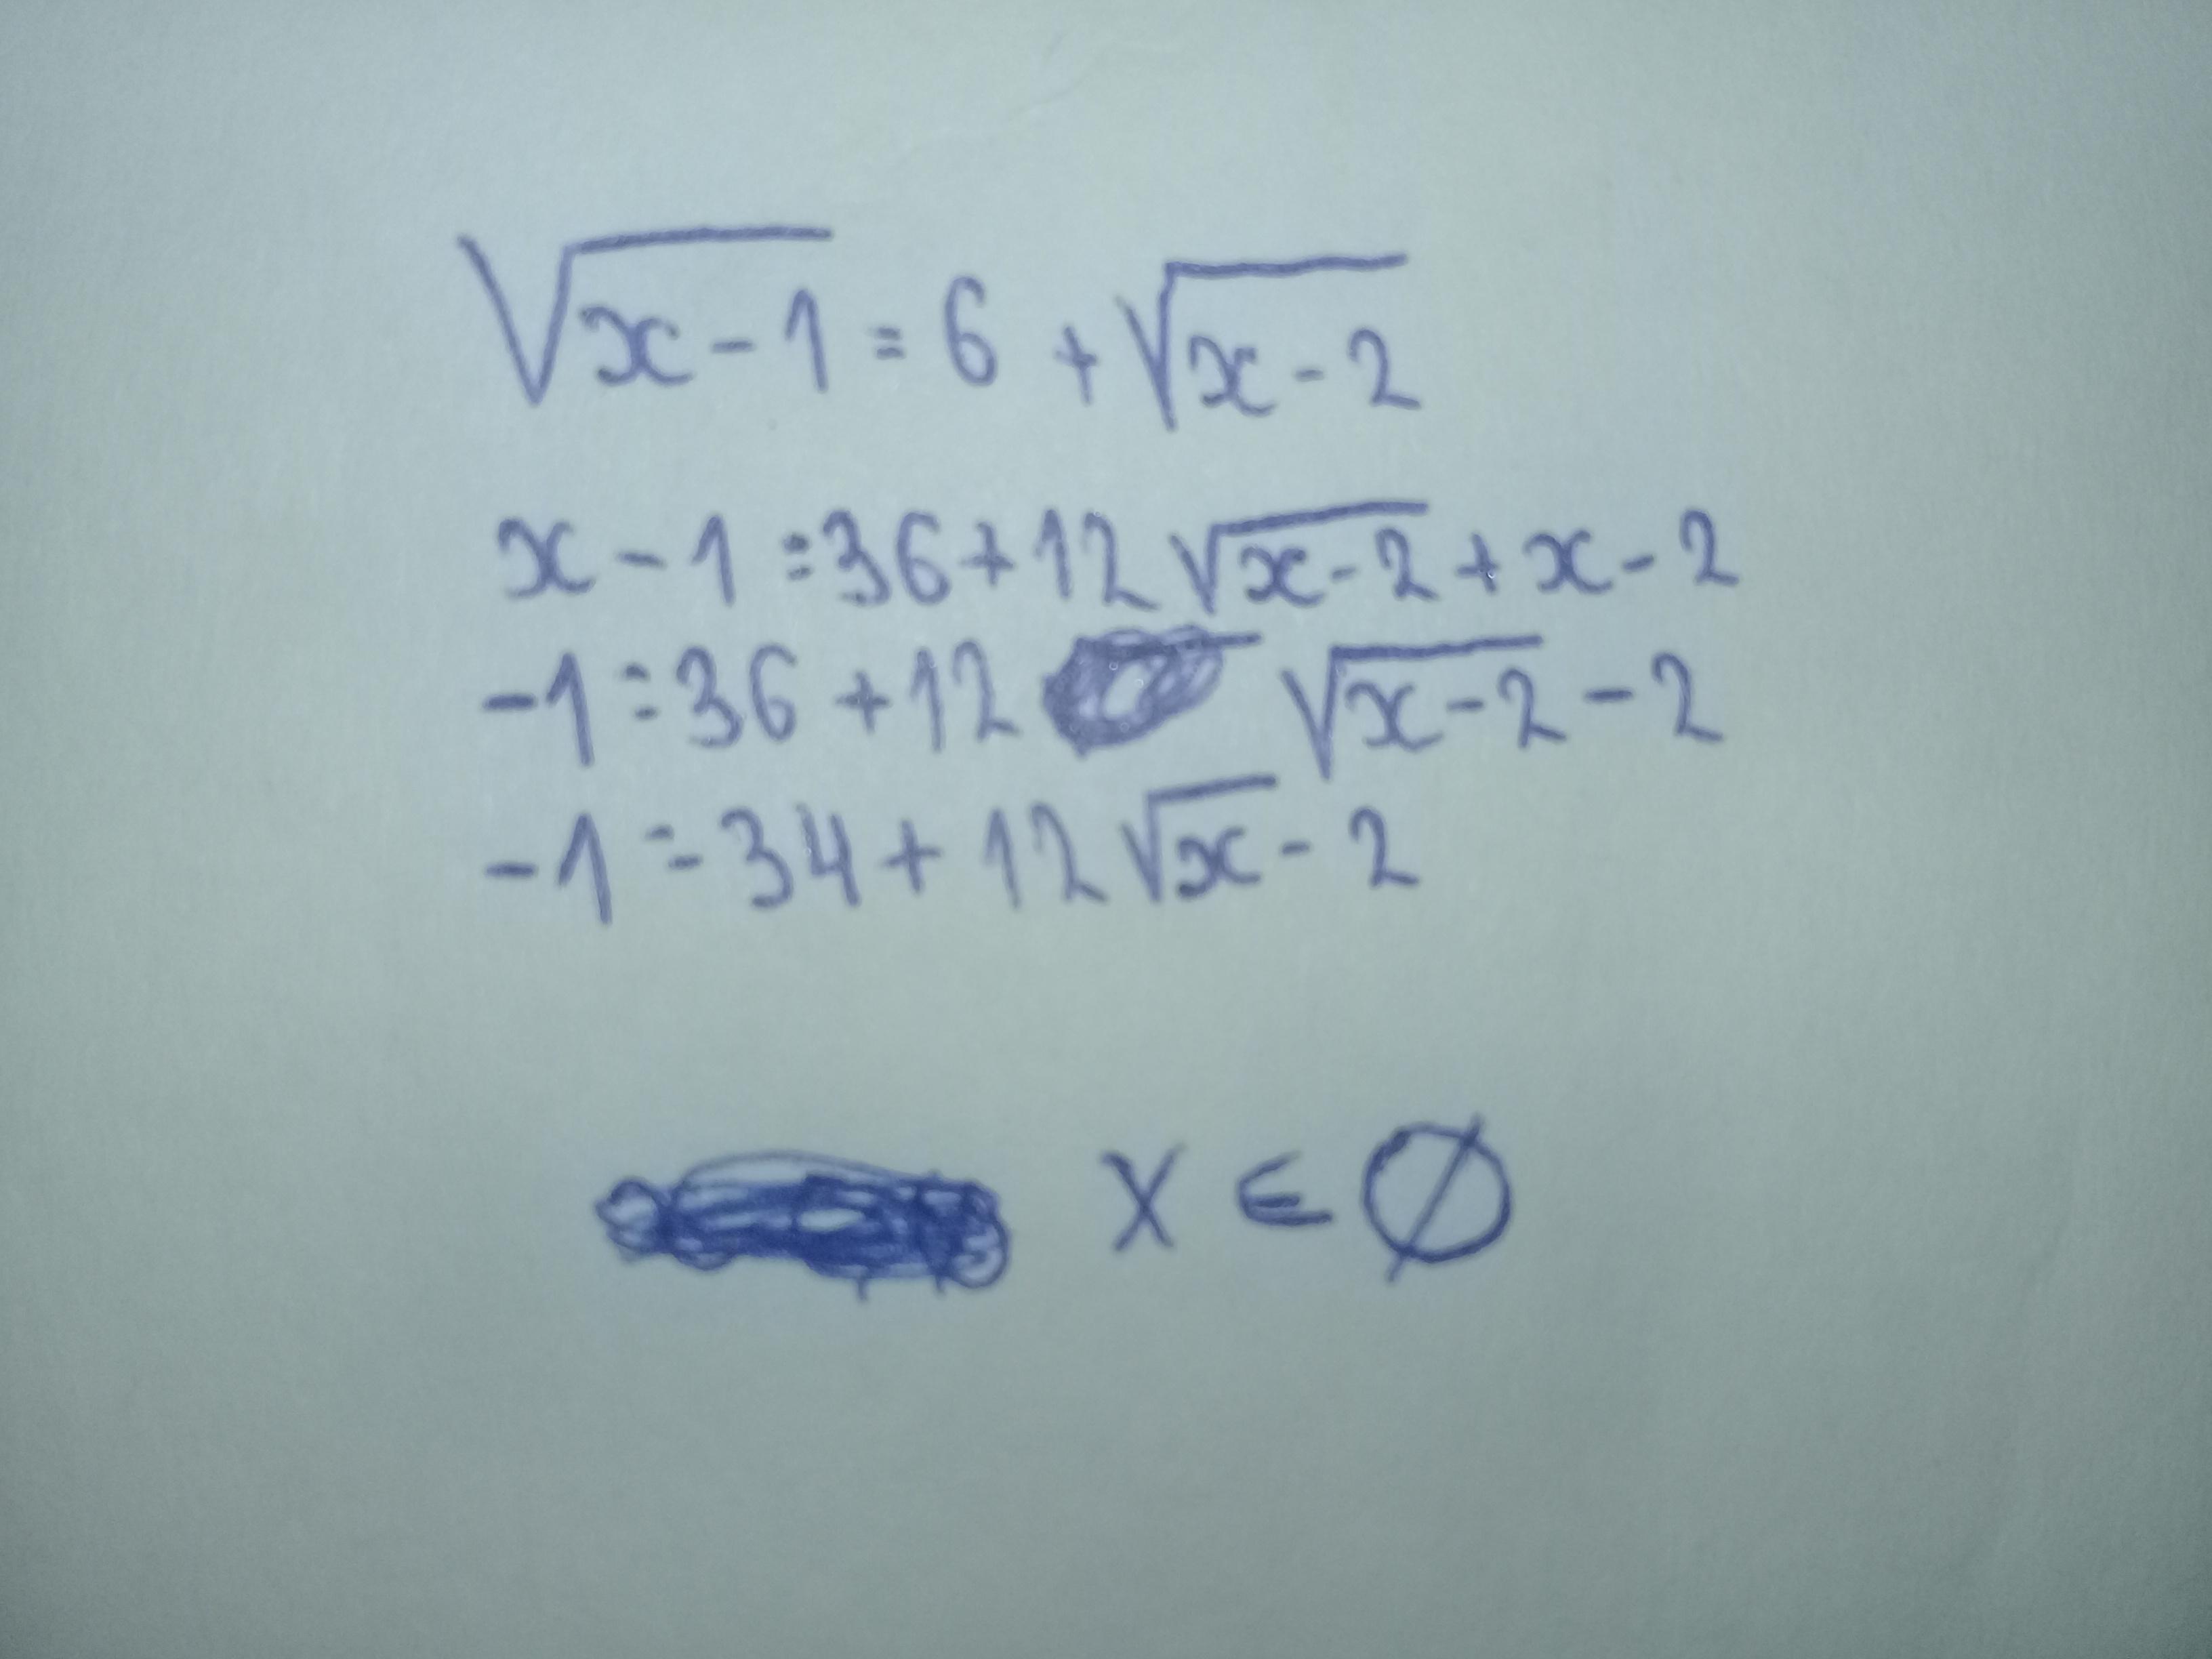 √(x-1) = 6 + √(x-2)
x - 1 = 36 + 12 √(x-2) + x - 2
-1 = 36 + 12 √(x-2) - 2
-1 = 34 + 12 √x - 2
x ∈ ∅